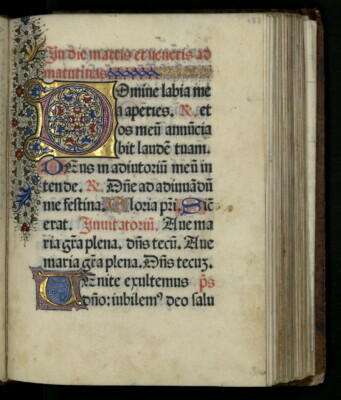 In die martis et veneris ad
matutinas
Domine labia me
a aperies. R. et
os meū annūcia
bit laudē tuam.
Deus in adiutoriū meū in
tende. R. Dñe ad adiuvādū
me festina. Gloria pr̄i. Sic̄
erat. Invitatoriū. Ave ma
ria gr̄a plena. dñs tecū. Ave
maria gr̄a plena. Dñs tecuʒ.
Venite exultemus ps
dño: iubilemꝰ deo salu